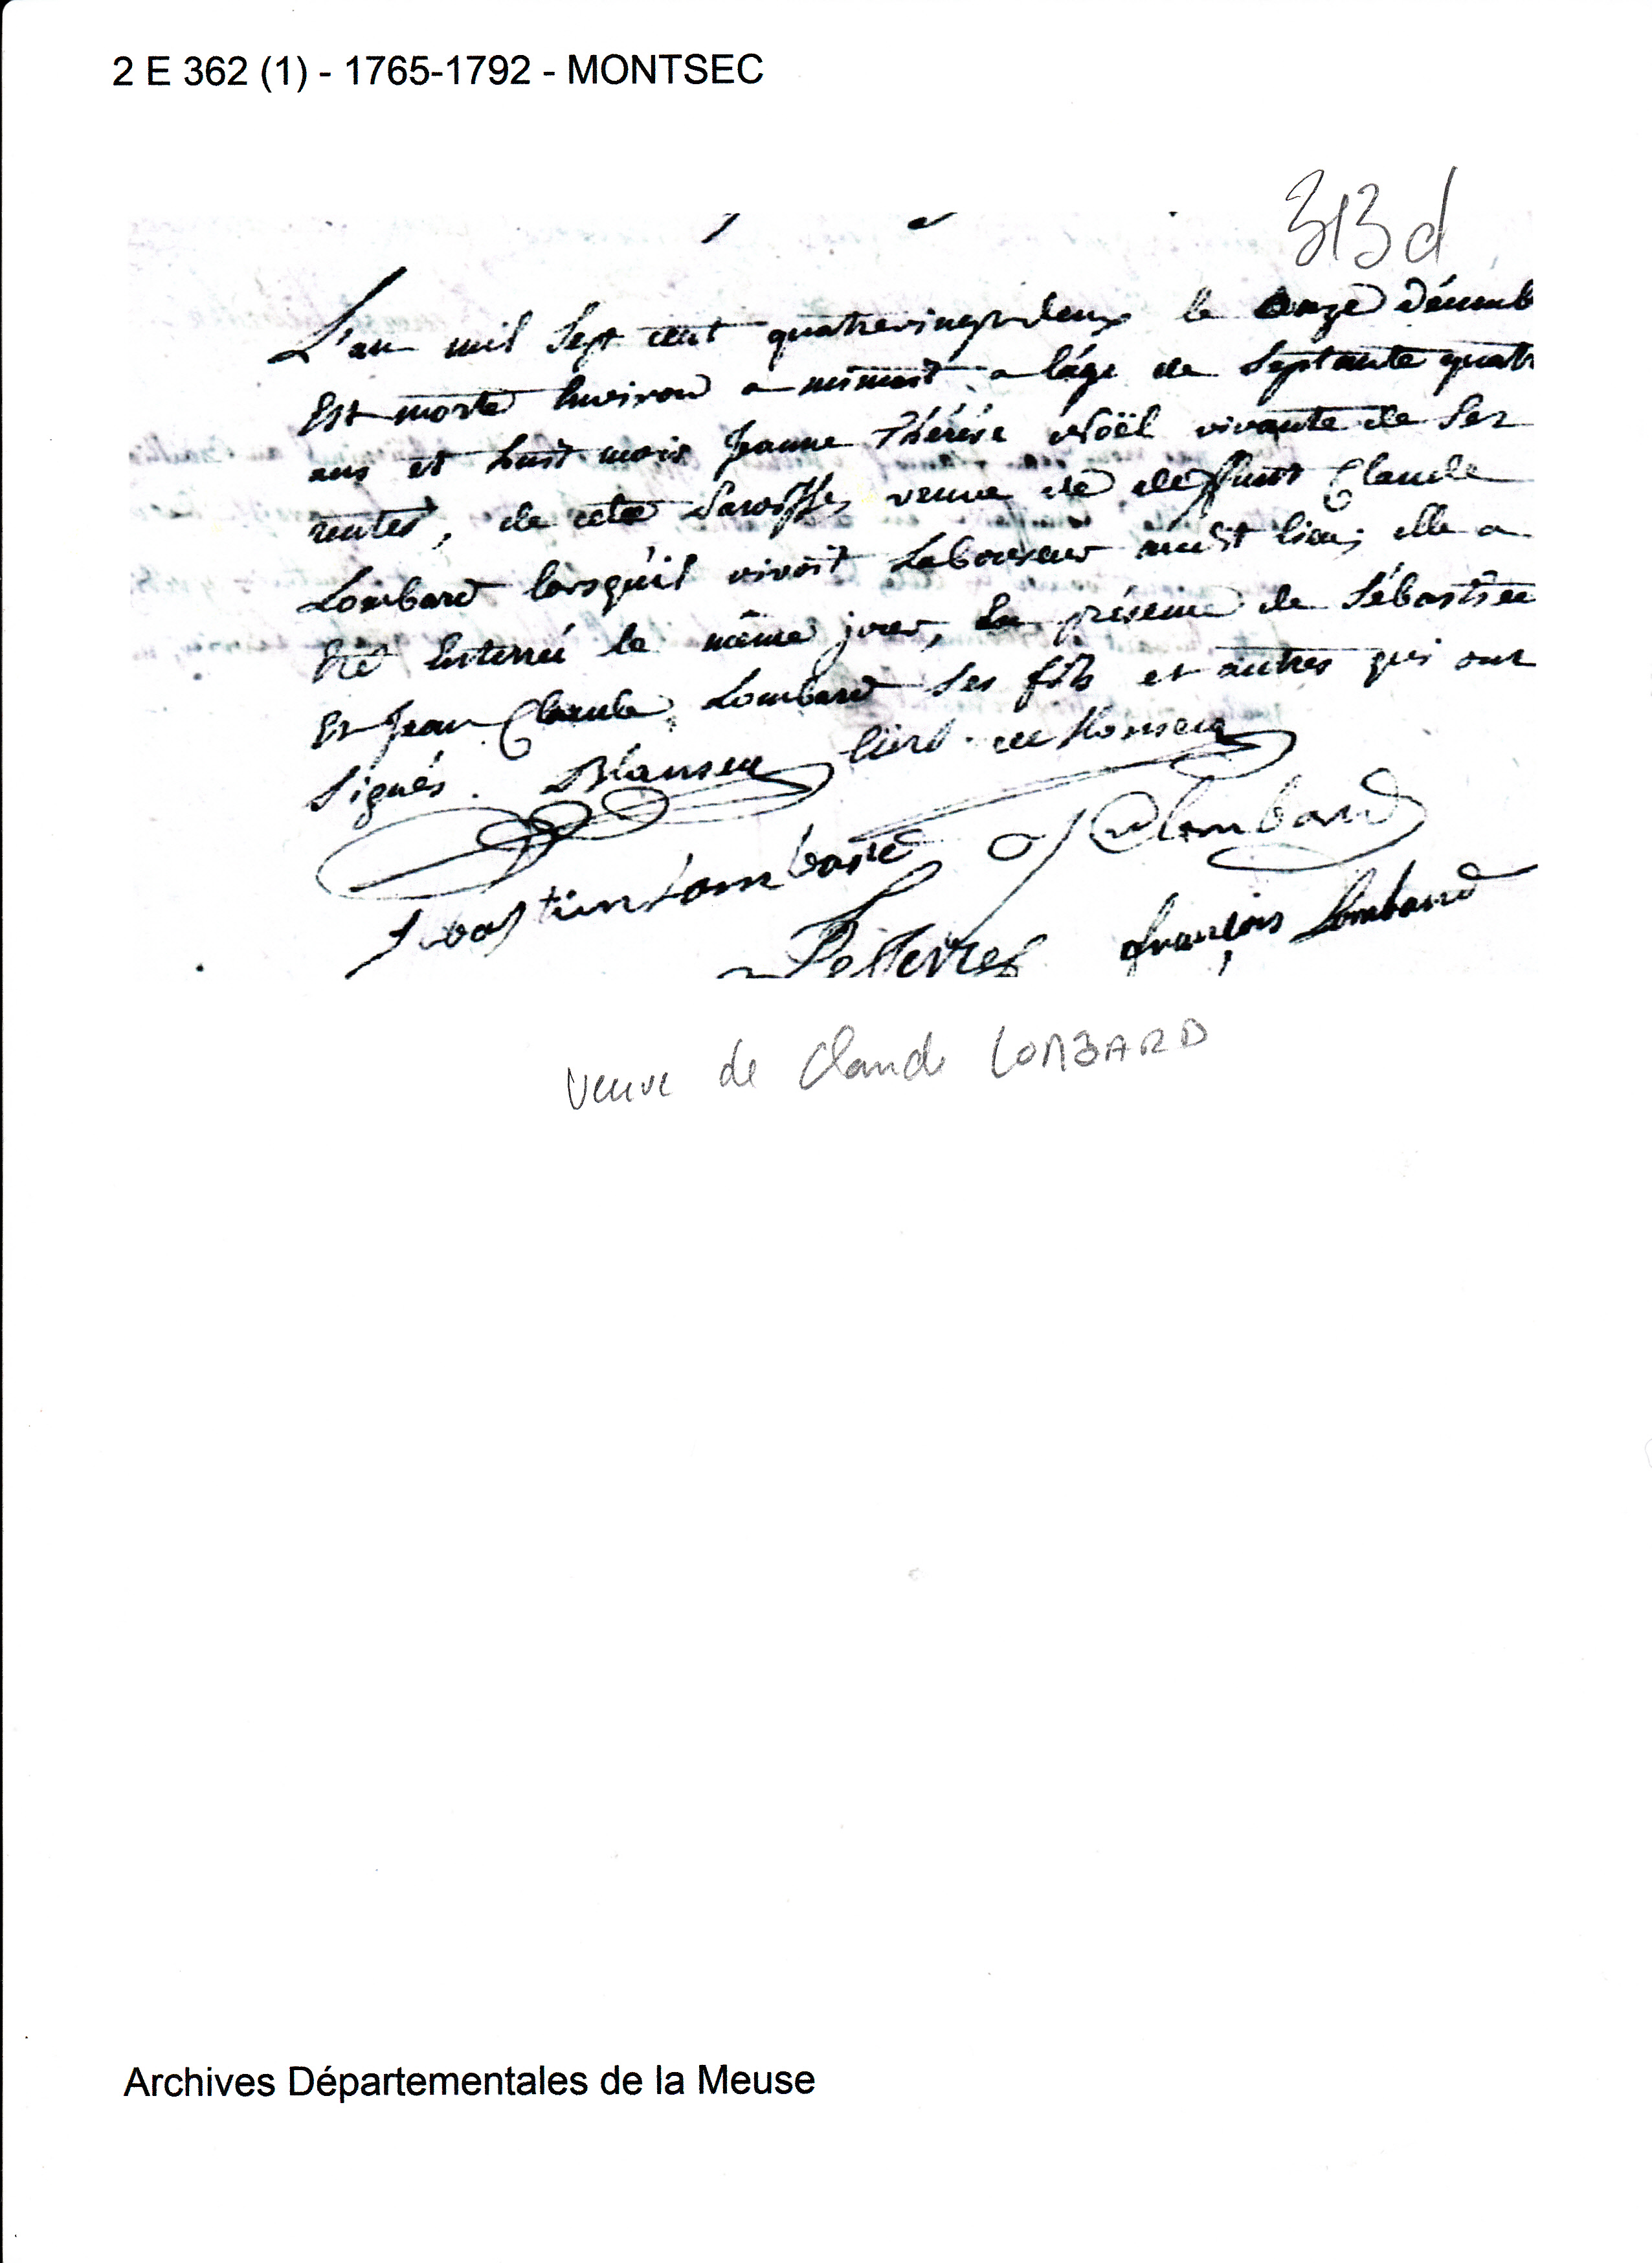 2 E 362 (1) - 1765-1792 - MONTSEC
313d
L'an mil Sept cent quatrevingt deux le onze décemb
Est morte Environ a minuit a l'âge de Septante quatr
ans et huit mois Jeanne Thérése Noël vivante de Ses
rentes, de cette Paroisse, veuve de deffunt Claude
Lombard lorsqu'il vivoit Laboureur audit lieu; elle a
Eté Enterrée le même jour, En présence de Sébastien
Et Jean Claude Lombard Ses fils et autres qui ont
Signés. Curé de Monsec
Sebastien Lombard J C Lombard
François Lombard
Veuve de Claude LOMBARD
Archives Départementales de la Meuse